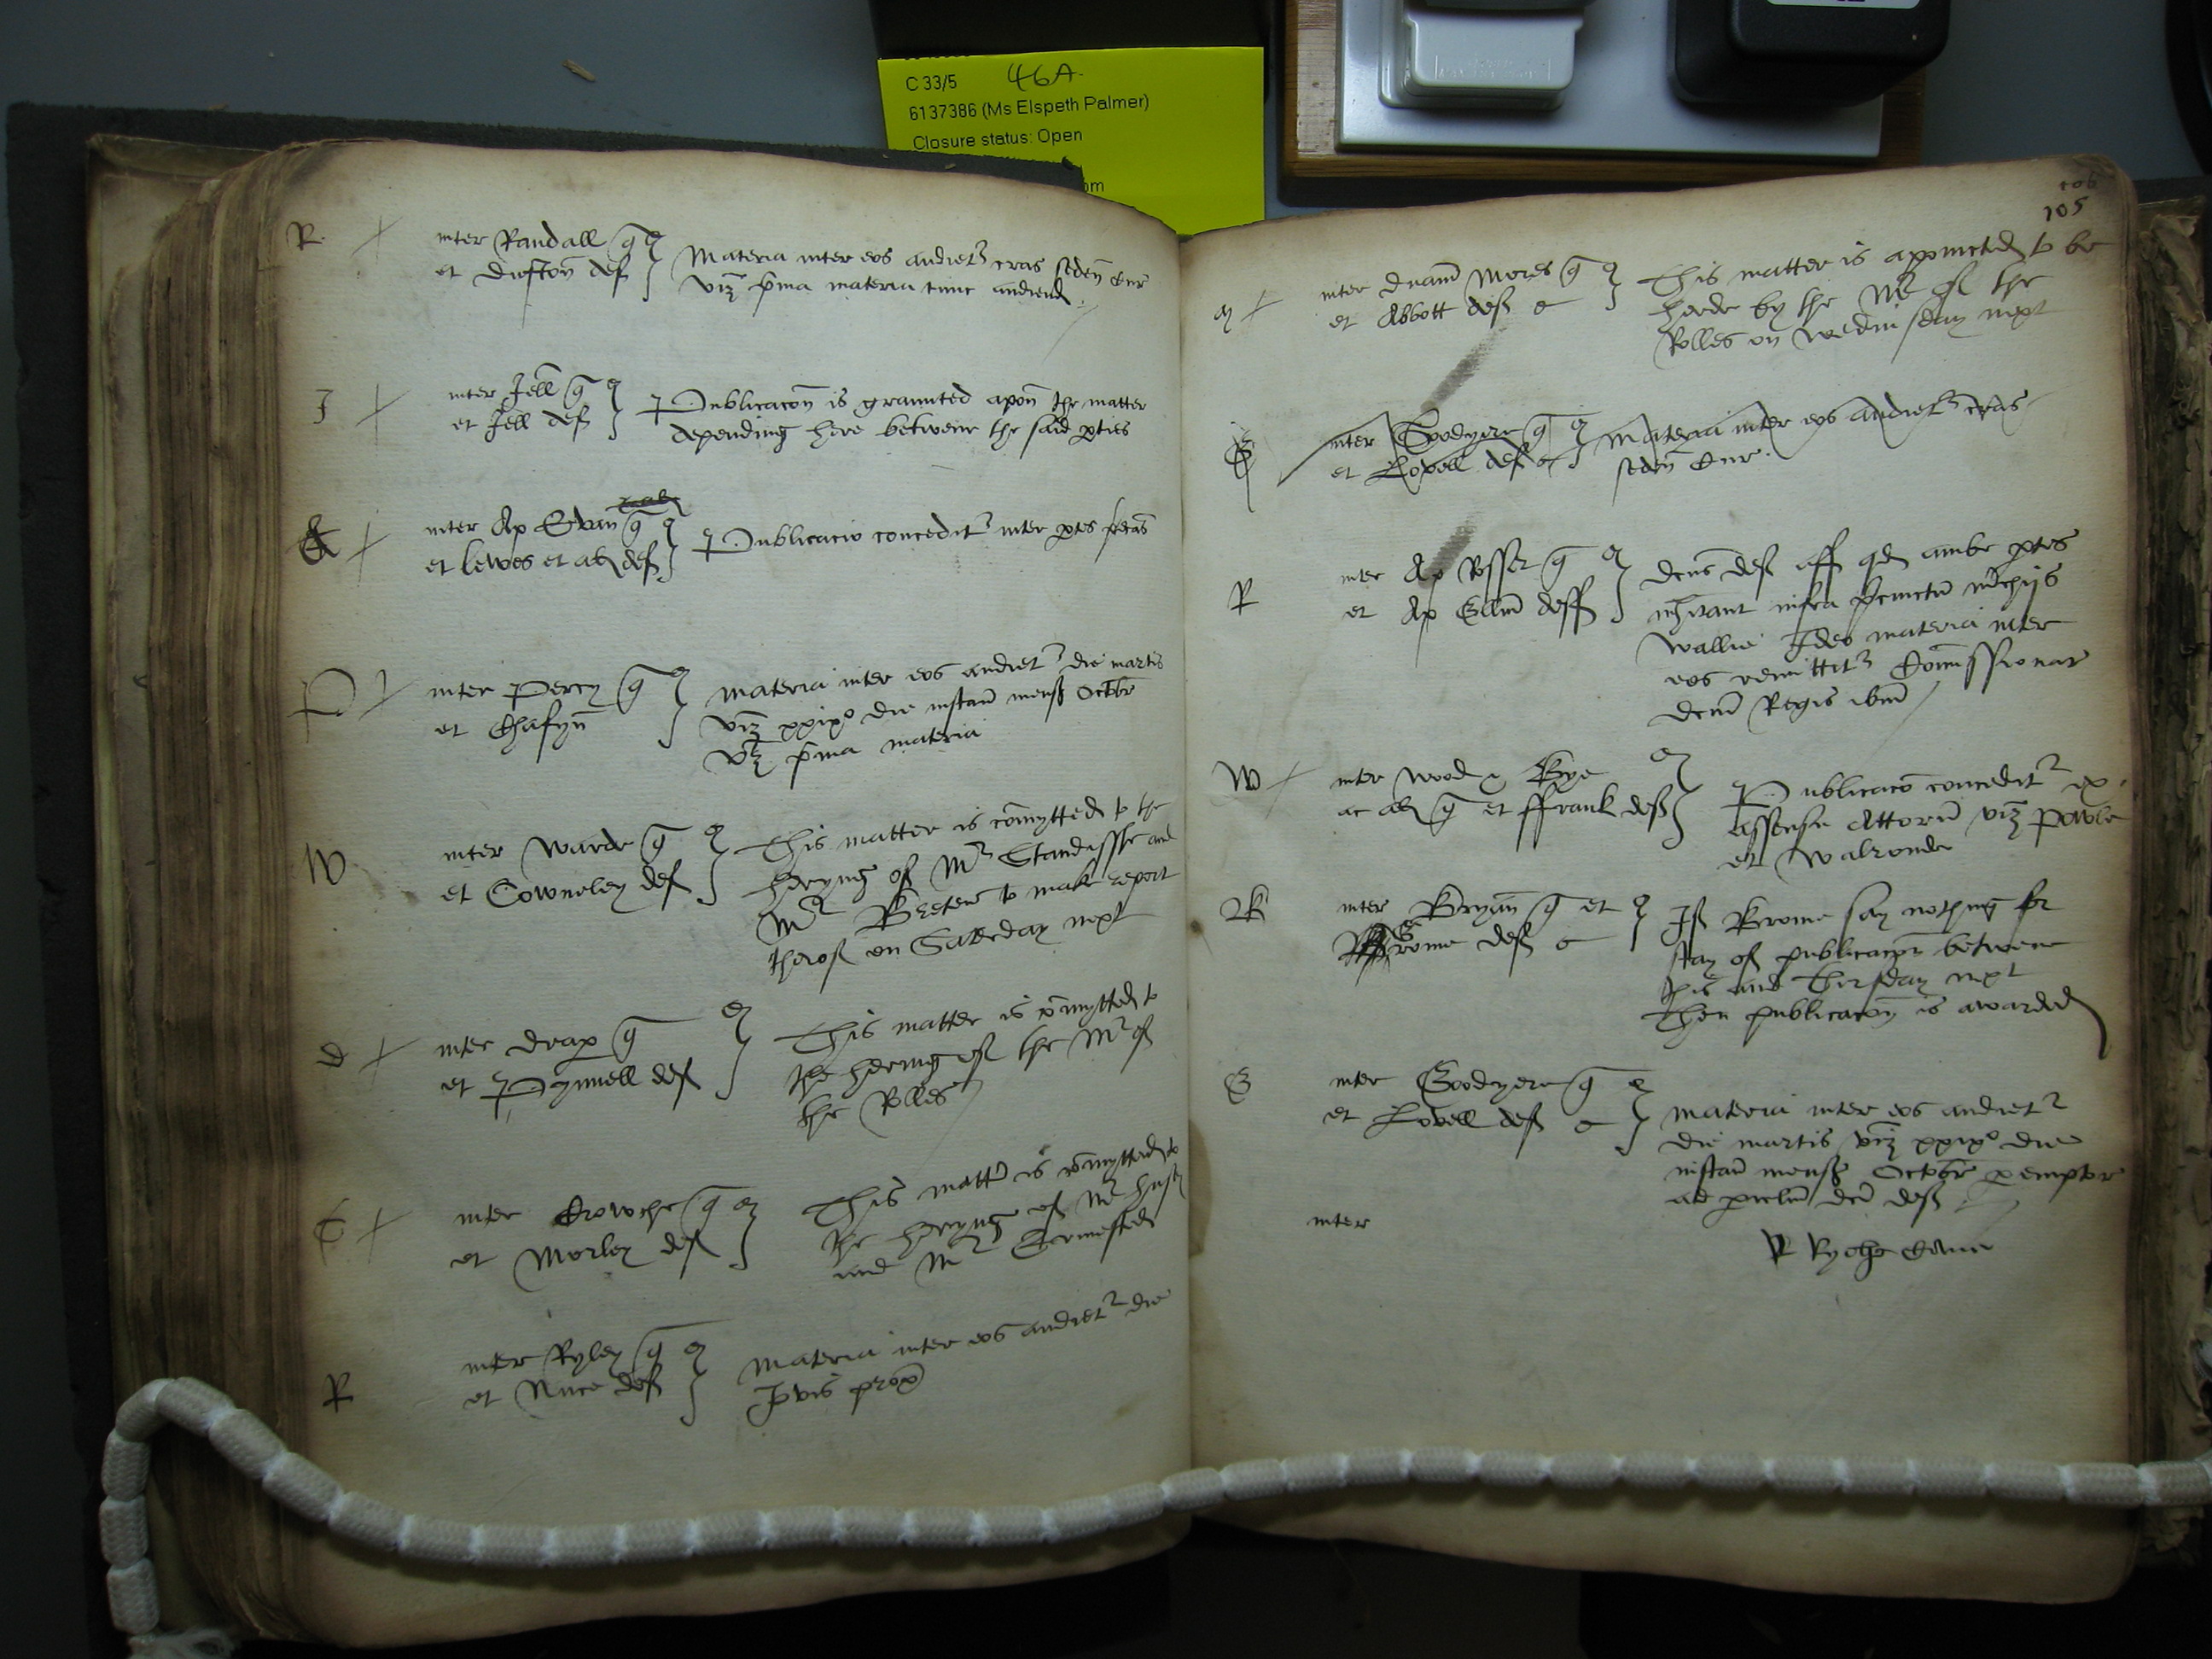 C 33/5 46A
6137386 (Ms Elspeth Palmer)
Closure status: Open
R
inter Randall q
et def
Materia inter eos audiet cras seden Cur
viz prima materia tunc audiend
J
inter Jell q
et Jell def
Publicacon is graunted apon the matter
depending here betwene the said pties
inter Ap Evan q
et lewes et al def
Publicacio concedit inter ptes pdcas
P
inter Percy q
et Chafyn
Materia inter eos audiet die martis
viz xxix die instan mens Octobr
viz prima materia
W
inter Warde q
et Towneley def
This matter is comytted to the
heryng of Mr Standisshe and
Mr to make report
therof on Satterday next
D
inter Drap q
et Pynnell def
This matter is comytted to
the hering of the Mr of
the Rolles
C
inter Crowche q
et Morley def
This matter is comytted to
the heryng of Mr
and Mr
R
inter Ryley q
et def
Materia inter eos audiet die
Jovis prox
106
105
M
inter dnam Mores q
et Abbott def
This matter is appointed to be
herde by the Mr of the
Rolles on Wednisday next
G
inter Goodyere q
et Lovell def
Materia inter eos audiet cras
seden Cur
R
inter Ap Rosser q
et Ap def
def aff qd ambe ptes
infra
Wallie Ideo materia inter
eos remittit Comissionar
dni Regis ibm
W
inter Wood & Bye
ac al q et ffrank def
Publicaco concedit ex
assensu Attorn viz Powle
et Walronde
B
inter Bryan q et
Brome def
If Brome say nothing for
stay of publicacon betwene
this and Thursday next
then publicacon is awarded
G
inter Goodyere q
et Lovell def
Materia inter eos audiet
die martis viz xxix die
instan mens Octobr pemptor
ad def
inter
R Ryche